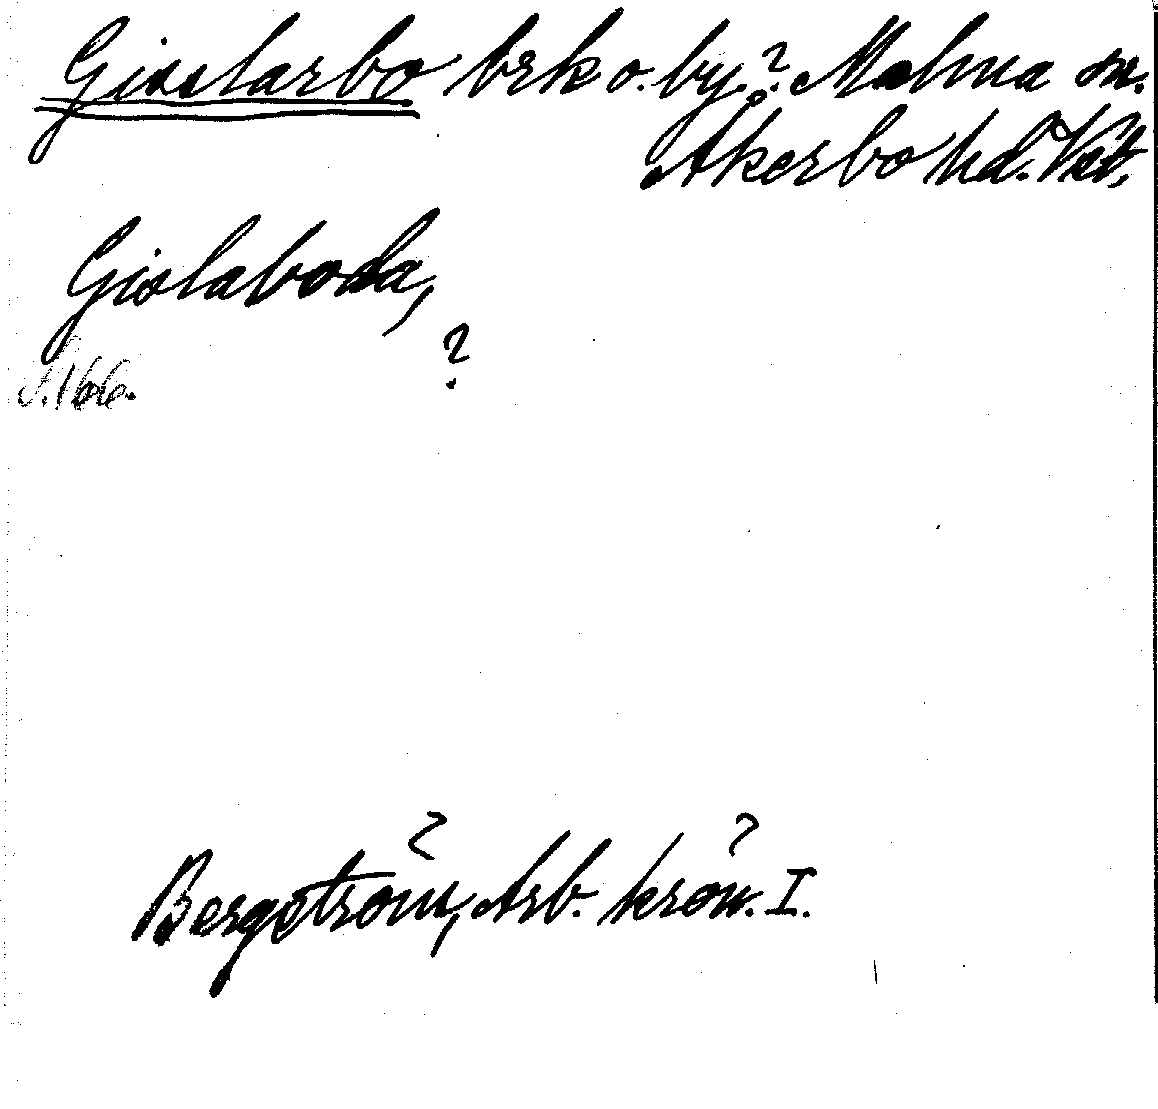 Gisslarbo brk o. by? Malma sn.
Åkerbo hd. Vstm.
Gislaboda,
?
S. 166.
Bergström, Arb. krön. I.